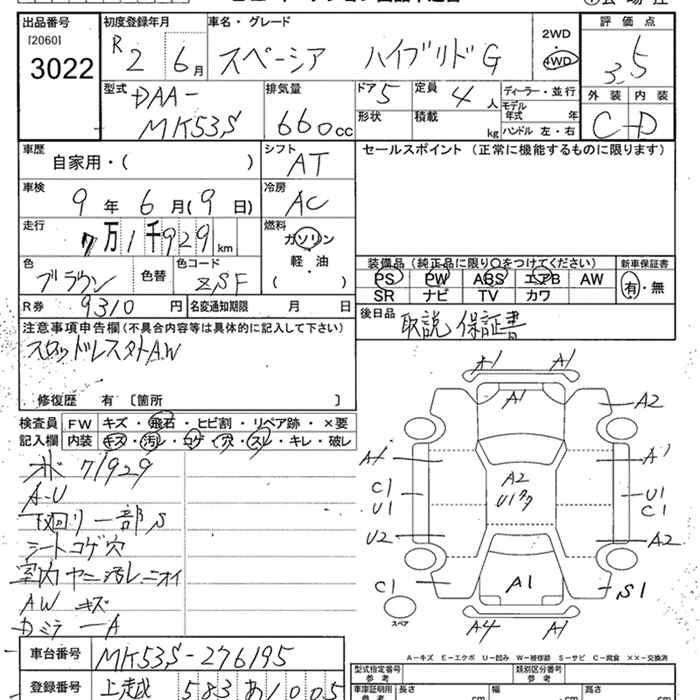 出品番号
[2060]
3022
初度登録年月
R 2 6月
車名・グレード
スペーシア ハイブリドG
2WD
4WD
評価点
3.5
外装 内装
C - D
型式
DAA-
MK53S
排気量
660cc
ドア 5
定員 4人
形状
積載 kg
ディーラー・並行
モデル年式 年
ハンドル 左・右
車歴
自家用・( )
シフト
AT
セールスポイント (正常に機能するものに限ります)
車検
9年 6月(9日)
冷房
AC
走行
7万1千929km
燃料
ガソリン
軽・油
( )
色
ブラウン
色替
色コード
ZSF
装備品 (純正品に限り○をつけてください)
PS PW ABS エアB AW
SR ナビ TV カワ
新車保証書
有・無
R券 9310円
名変通知期限 月 日
後日品 取説 保証書
注意事項申告欄(不具合内容等は具体的に記入して下さい)
スタッドレスタイトAW
修復歴 有〔箇所 〕
検査員記入欄
FW キズ・飛石・ヒビ割・リペア跡・×要
内装 キズ・汚レ・コゲ・穴・スレ・キレ・破レ
71929
A-U
下廻り一部S
シートコゲ穴
室内ヤニ汚レニオイ
AW キズ
DミラーA
A1 A1
A1 A2
A1 A1
A2
U1
C1 U1
U1 C1
U2 A2
C1 A1 S1
スペア
A4 A1
A-キズ E-エクボ U-凹み W-補修跡 S-サビ C-腐食 ×××-交換済
車台番号 MK53S-276195
登録番号 583 あ1005
型式指定番号 参考
類別区分番号 参考
車庫証明用 参考
長さ cm
幅 cm
高さ